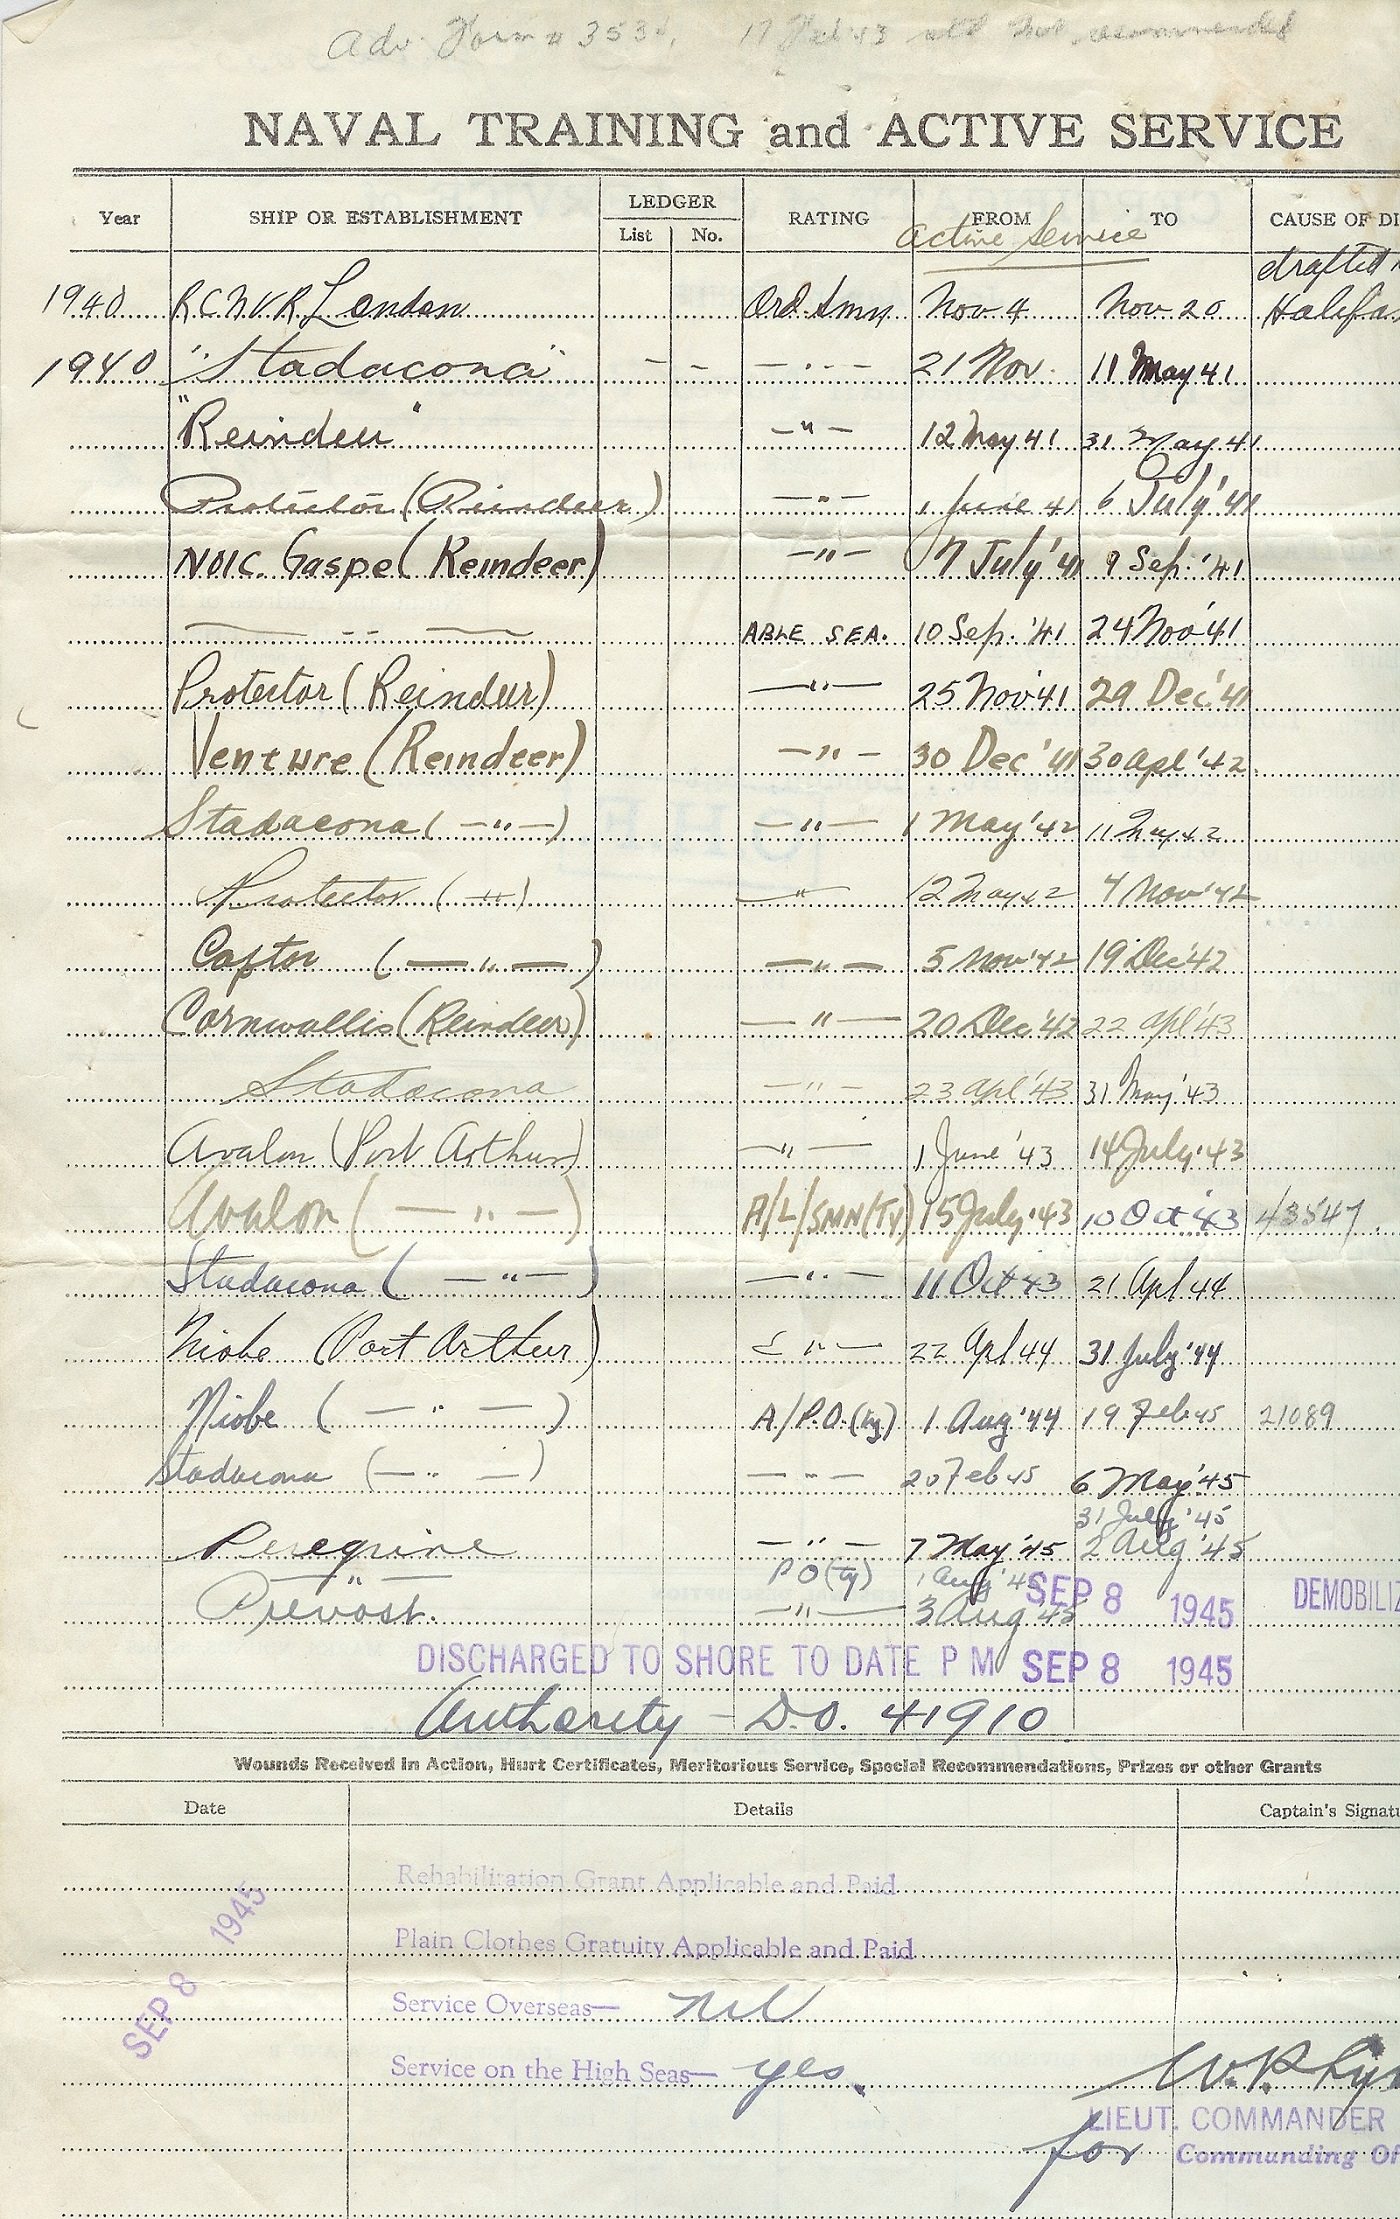 Adv. Form # 353d, 17 Feb 43 still not recommended
NAVAL TRAINING and ACTIVE SERVICE
Year SHIP OR ESTABLISHMENT LEDGER List No. RATING FROM TO CAUSE OF DI
Active Service
drafted
1940 R.C.N.V.R. London Ord. Smn Nov 4 Nov 20 Halifa
1940 "Stadacona" - - - " - 21 Nov. 11 May 41
"Reindeer" - " - 12 May 41 31 May 41
Protector (Reindeer) - " - 1 June 41 6 July '41
NOIC. Gaspe (Reindeer) - " - 7 July '41 9 Sep. '41
— " — ABLE SEA. 10 Sep. '41 24 Nov '41
Protector (Reindeer) - " - 25 Nov '41 29 Dec. '41
Venture (Reindeer) - " - 30 Dec '41 30 Apl '42
Stadacona ( - " - ) - " - 1 May '42 11 May 42
Protector ( - " - ) " 12 May 42 4 Nov '42
Captor ( - " - ) - " - 5 Nov '42 19 Dec '42
Cornwallis (Reindeer) - " - 20 Dec '42 22 Apl '43
Stadacona - " - 23 Apl '43 31 May '43
Avalon (Port Arthur) - " - 1 June '43 14 July '43
Avalon ( - " - ) A/L/SMN(TY) 15 July '43 10 Oct '43 43547.
Stadacona ( - " - ) - " - 11 Oct 43 21 Apl 44
Niobe (Port Arthur) - " - 22 Apl 44 31 July '44
Niobe ( - " - ) A/P.O.(ty) 1 Aug '44 19 Feb 45 21089
Stadacona ( - " - ) - " - 20 Feb 45 6 May '45
31 July '45
Peregrine - " - 7 May '45 2 Aug '45
- " - P O (ty) 1 Aug '45
Prevost. - " - 3 Aug 45 SEP 8 1945 DEMOBILIZ
DISCHARGED TO SHORE TO DATE P M SEP 8 1945
Authority - D.O. 41910
Wounds Received in Action, Hurt Certificates, Meritorious Service, Special Recommendations, Prizes or other Grants
Date Details Captain's Signatu
Rehabilitation Grant Applicable and Paid
SEP 8 1945
Plain Clothes Gratuity Applicable and Paid
Service Overseas— nil
Service on the High Seas— yes.
LIEUT. COMMANDER
for Commanding Of